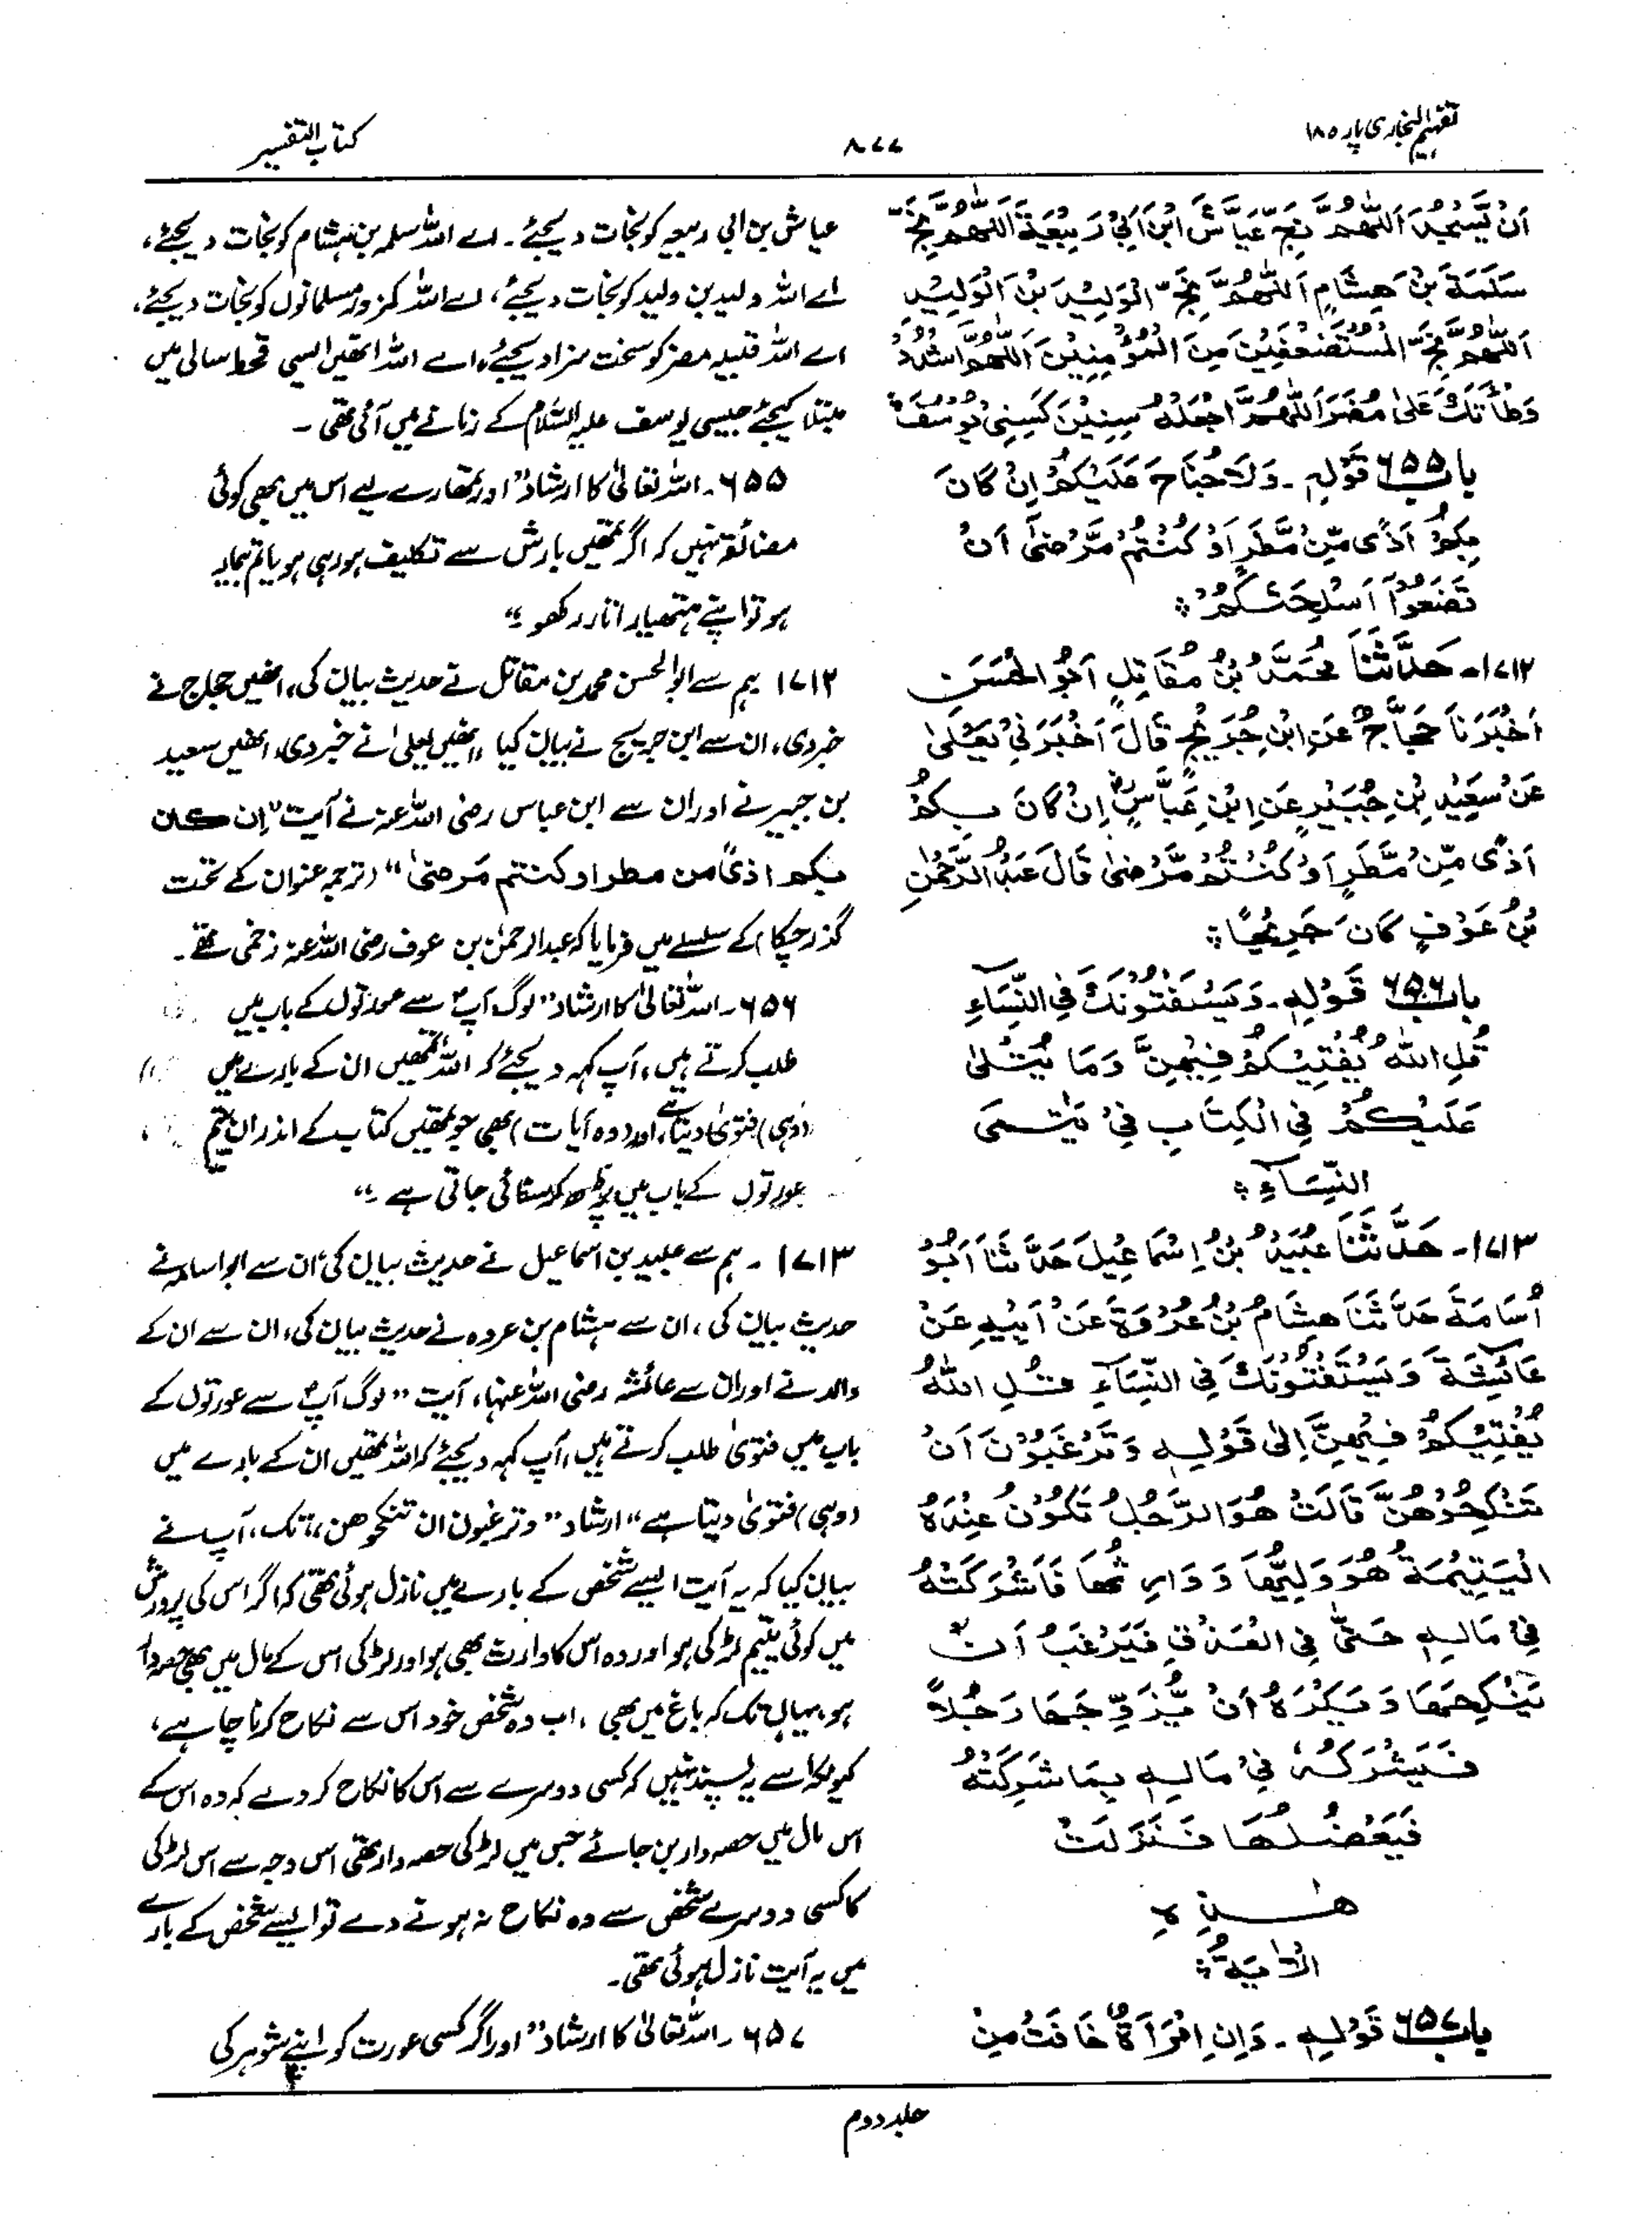 تفہیم البخاری پارہ ۱۸
۸۷۷
کتاب التفسیر
اَنْ یَّسْجُدَ اَللّٰھُمَّ نَجِّ عَیَّاشَ ابْنَ اَبِیْ رَبِیْعَةَ اَللّٰھُمَّ نَجِّ
سَلَمَةَ بْنَ ھِشَامٍ اَللّٰھُمَّ نَجِّ الْوَلِیْدَ بْنَ الْوَلِیْدِ
اَللّٰھُمَّ نَجِّ الْمُسْتَضْعَفِیْنَ مِنَ الْمُؤْمِنِیْنَ اَللّٰھُمَّ اشْدُدْ
وَطْأَتَكَ عَلٰی مُضَرَ اَللّٰھُمَّ اجْعَلْهُ سِنِیْنَ كَسِنِیْ یُوْسُفَ
باب ۶۵۵ قَوْلِهٖ ۔ وَلَا جُنَاحَ عَلَیْكُمْ اِنْ كَانَ
بِكُمْ اَذًی مِّنْ مَّطَرٍ اَوْ كُنْتُمْ مَّرْضٰی اَنْ
تَضَعُوْا اَسْلِحَتَكُمْ ؞
۱۷۱۲۔ حَدَّثَنَا مُحَمَّدُ بْنُ مُقَاتِلٍ اَبُو الْحَسَنِ
اَخْبَرَنَا حَجَّاجٌ عَنِ ابْنِ جُرَیْجٍ قَالَ اَخْبَرَنِیْ یَعْلٰی
عَنْ سَعِیْدِ بْنِ جُبَیْرٍ عَنِ ابْنِ عَبَّاسٍ اِنْ كَانَ بِكُمْ
اَذًی مِّنْ مَّطَرٍ اَوْ كُنْتُمْ مَّرْضٰی قَالَ عَبْدُ الرَّحْمٰنِ
بْنُ عَوْفٍ كَانَ جَرِیْحًا ؞
باب ۶۵۶ قَوْلِهٖ ۔ وَیَسْتَفْتُوْنَكَ فِی النِّسَآءِ
قُلِ اللّٰهُ یُفْتِیْكُمْ فِیْهِنَّ وَمَا یُتْلٰی
عَلَیْكُمْ فِی الْكِتَابِ فِیْ یَتٰمَی
النِّسَآءِ ؞
۱۷۱۳۔ حَدَّثَنَا عُبَیْدُ بْنُ اِسْمَاعِیْلَ حَدَّثَنَا اَبُوْ
اُسَامَةَ حَدَّثَنَا هِشَامُ بْنُ عُرْوَةَ عَنْ اَبِیْهِ عَنْ
عَائِشَةَ وَیَسْتَفْتُوْنَكَ فِی النِّسَآءِ قُلِ اللّٰهُ
یُفْتِیْكُمْ فِیْهِنَّ اِلٰی قَوْلِهٖ وَتَرْغَبُوْنَ اَنْ
تَنْكِحُوْهُنَّ قَالَتْ هُوَ الرَّجُلُ تَكُوْنُ عِنْدَهُ
الْیَتِیْمَةُ هُوَ وَلِیُّهَا وَوَارِثُهَا فَاَشْرَكَتْهُ
فِیْ مَالِهٖ حَتّٰی فِی الْعَذْقِ فَیَرْغَبُ اَنْ
یَّنْكِحَهَا وَیَكْرَهُ اَنْ یُّزَوِّجَهَا رَجُلًا
فَیَشْرَكُهٗ فِیْ مَالِهٖ بِمَا شَرِكَتْهُ
فَیَعْضُلُهَا فَنَزَلَتْ
هٰذِهِ
الْاٰیَةُ ؞
باب ۶۵۷ قَوْلِهٖ ۔ وَاِنِ امْرَأَةٌ خَافَتْ مِنْ
عیاش بن ابی ربیعہ کو نجات دیجئے۔ اے اللہ سلمہ بن ہشام کو نجات دیجئے،
اے اللہ ولید بن ولید کو نجات دیجئے، اے اللہ کمزور مسلمانوں کو نجات دیجئے،
اے اللہ قبیلہ مضر کو سخت سزا دیجئے، اے اللہ انھیں ایسی قحط سالی میں
مبتلا کیجئے جیسی یوسف علیہ السلام کے زمانے میں آئی تھی ۔
۶۵۵۔ اللہ تعالیٰ کا ارشاد ”اور تمھارے لیے اس میں بھی کوئی
مضائقہ نہیں کہ اگر تمھیں بارش سے تکلیف ہو رہی ہو یا تم بیمار
ہو تو اپنے ہتھیار اتار رکھو ۔“
۱۷۱۲ ہم سے ابو الحسن محمد بن مقاتل نے حدیث بیان کی، انھیں حجاج نے
خبر دی، ان سے ابن جریج نے بیان کیا، انھیں یعلیٰ نے خبر دی، انھیں سعید
بن جبیر نے اور ان سے ابن عباس رضی اللہ عنہ نے آیت ”ان كان
بكم اذیً من مطر او كنتم مرضیٰ“ (ترجمہ عنوان کے تحت
گذر چکا) کے سلسلے میں فرمایا کہ عبد الرحمٰن بن عوف رضی اللہ عنہ زخمی تھے ۔
۶۵۶۔ اللہ تعالیٰ کا ارشاد ”لوگ آپؐ سے عورتوں کے باب میں
طلب کرتے ہیں، آپ کہہ دیجئے کہ اللہ تمھیں ان کے بارے میں
(وہی) فتویٰ دیتا ہے، اور (وہ آیات) بھی جو تمھیں کتاب کے اندر ان یتیم
عورتوں کے باب میں پڑھ کر سنائی جاتی ہے ۔“
۱۷۱۳ ۔ ہم سے عبید بن اسماعیل نے حدیث بیان کی، ان سے ابو اسامہ نے
حدیث بیان کی، ان سے ہشام بن عروہ نے حدیث بیان کی، ان سے ان کے
والد نے اور ان سے عائشہ رضی اللہ عنہا، آیت ”لوگ آپؐ سے عورتوں کے
باب میں فتویٰ طلب کرتے ہیں، آپ کہہ دیجئے کہ اللہ تمھیں ان کے بارے میں
(وہی) فتویٰ دیتا ہے“ ارشاد ”وترغبون ان تنكحوهن“ تک، آپ نے
بیان کیا کہ یہ آیت ایسے شخص کے بارے میں نازل ہوئی تھی کہ اگر اس کی پرورش
میں کوئی یتیم لڑکی ہو اور وہ اس کا وارث بھی ہو اور لڑکی اس کے مال میں بھی حصہ دار
ہو، یہاں تک کہ باغ میں بھی، اب وہ شخص خود اس سے نکاح کرنا چاہے،
کیونکہ اسے یہ پسند نہیں کہ کسی دوسرے سے اس کا نکاح کر دے کہ وہ اس کے
اس مال میں حصہ دار بن جائے جس میں لڑکی حصہ دار تھی اس وجہ سے اس لڑکی
کا کسی دوسرے شخص سے وہ نکاح نہ ہونے دے تو ایسے شخص کے بارے
میں یہ آیت نازل ہوئی تھی ۔
۶۵۷ ۔ اللہ تعالیٰ کا ارشاد ”اور اگر کسی عورت کو اپنے شوہر کی
جلد دوم